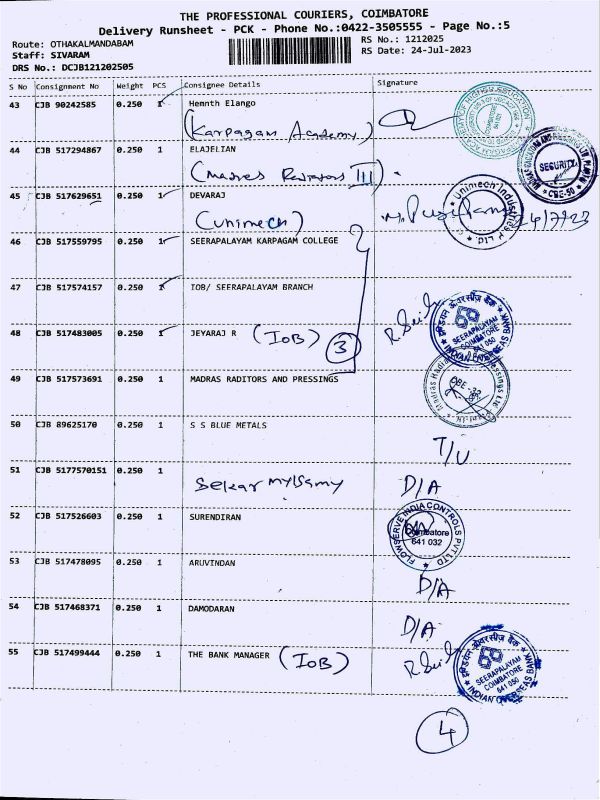 THE PROFESSIONAL COURIERS, COIMBATORE
Delivery Runsheet - PCK - Phone No.:0422-3505555 - Page No.:5
Route: OTHAKALMANDABAM
RS No.: 1212025
Staff: SIVARAM
RS Date: 24-Jul-2023
DRS No.: DCJB121202505
S No Consignment No Weight PCS Consignee Details Signature
43 CJB 90242585 0.250 1 Hemnth Elango
(Karpagam Academy)
44 CJB 517294867 0.250 1 ELAJELIAN
(Madres III)
SECURITY
45 CJB 517629651 0.250 1 DEVARAJ
(Unimech)
Unimech Industries P Ltd.
24/7/23
46 CJB 517559795 0.250 1 SEERAPALAYAM KARPAGAM COLLEGE
47 CJB 517574157 0.250 1 IOB/ SEERAPALAYAM BRANCH
48 CJB 517483005 0.250 1 JEYARAJ R (IOB)
3
इंडियन ओवरसीज़ बैंक
SEERAPALAYAM
COIMBATORE
641 050
INDIAN OVERSEAS BANK
49 CJB 517573691 0.250 1 MADRAS RADITORS AND PRESSINGS
50 CJB 89625170 0.250 1 S S BLUE METALS
T/U
51 CJB 5177570151 0.250 1
Sekar Mylsamy D/A
52 CJB 517526603 0.250 1 SURENDIRAN
FLOWSERVE INDIA CONTROLS PVT LTD
Coimbatore
641 032
53 CJB 517478095 0.250 1 ARUVINDAN
D/A
54 CJB 517468371 0.250 1 DAMODARAN
D/A
55 CJB 517499444 0.250 1 THE BANK MANAGER (IOB)
इंडियन ओवरसीज़ बैंक
SEERAPALAYAM
COIMBATORE
641 050
INDIAN OVERSEAS BANK
4